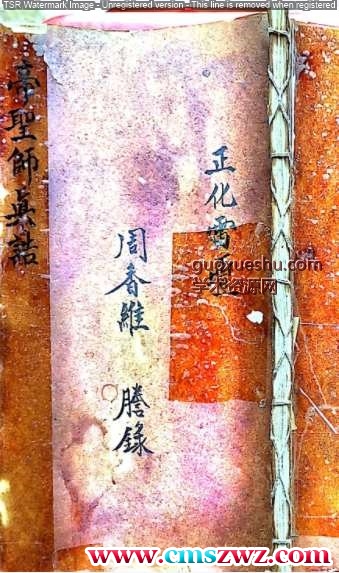 TSR Watermark Image - Unregistered version - This line is removed when registered
正化雷
周香維 謄錄
帝聖師眞誥
guoxueshu.com
学术资源网
www.cmszwz.com